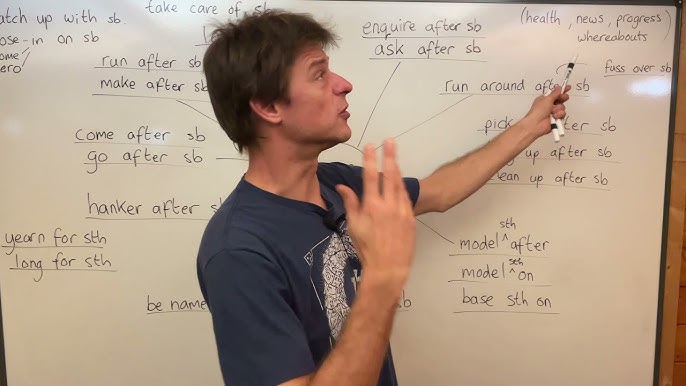 take care of sb
catch up with sb.
close-in on sb
enquire after sb
ask after sb
(health, news, progress
whereabouts)
run after sb
make after sb
run around after sb
fuss over sb
come after sb
go after sb
up after sb
up after sb
hanker after
yearn for sth
long for sth
model sth ^ after
model sth ^ on
base sth on
be name